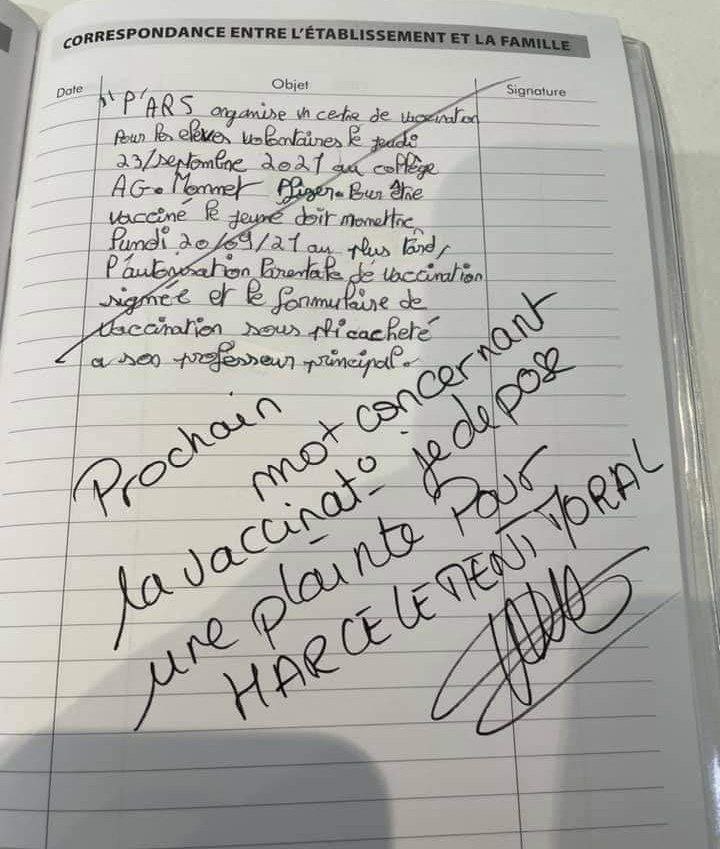 CORRESPONDANCE ENTRE L'ÉTABLISSEMENT ET LA FAMILLE
Date Objet Signature
" l'ARS organise un centre de vaccination
pour les élèves volontaires le jeudi
23/septembre 2021 au collège
AG. Monnet Pfizer. Pour être
vacciné le jeune doit remettre,
lundi 20/09/21 au plus tard,
l'autorisation Parentale de vaccination
signée et le formulaire de
vaccination sous pli cacheté
a son professeur principal.
Prochain
mot concernant
la vaccinato je depose
une plainte Pour
HARCELEMENT MORAL